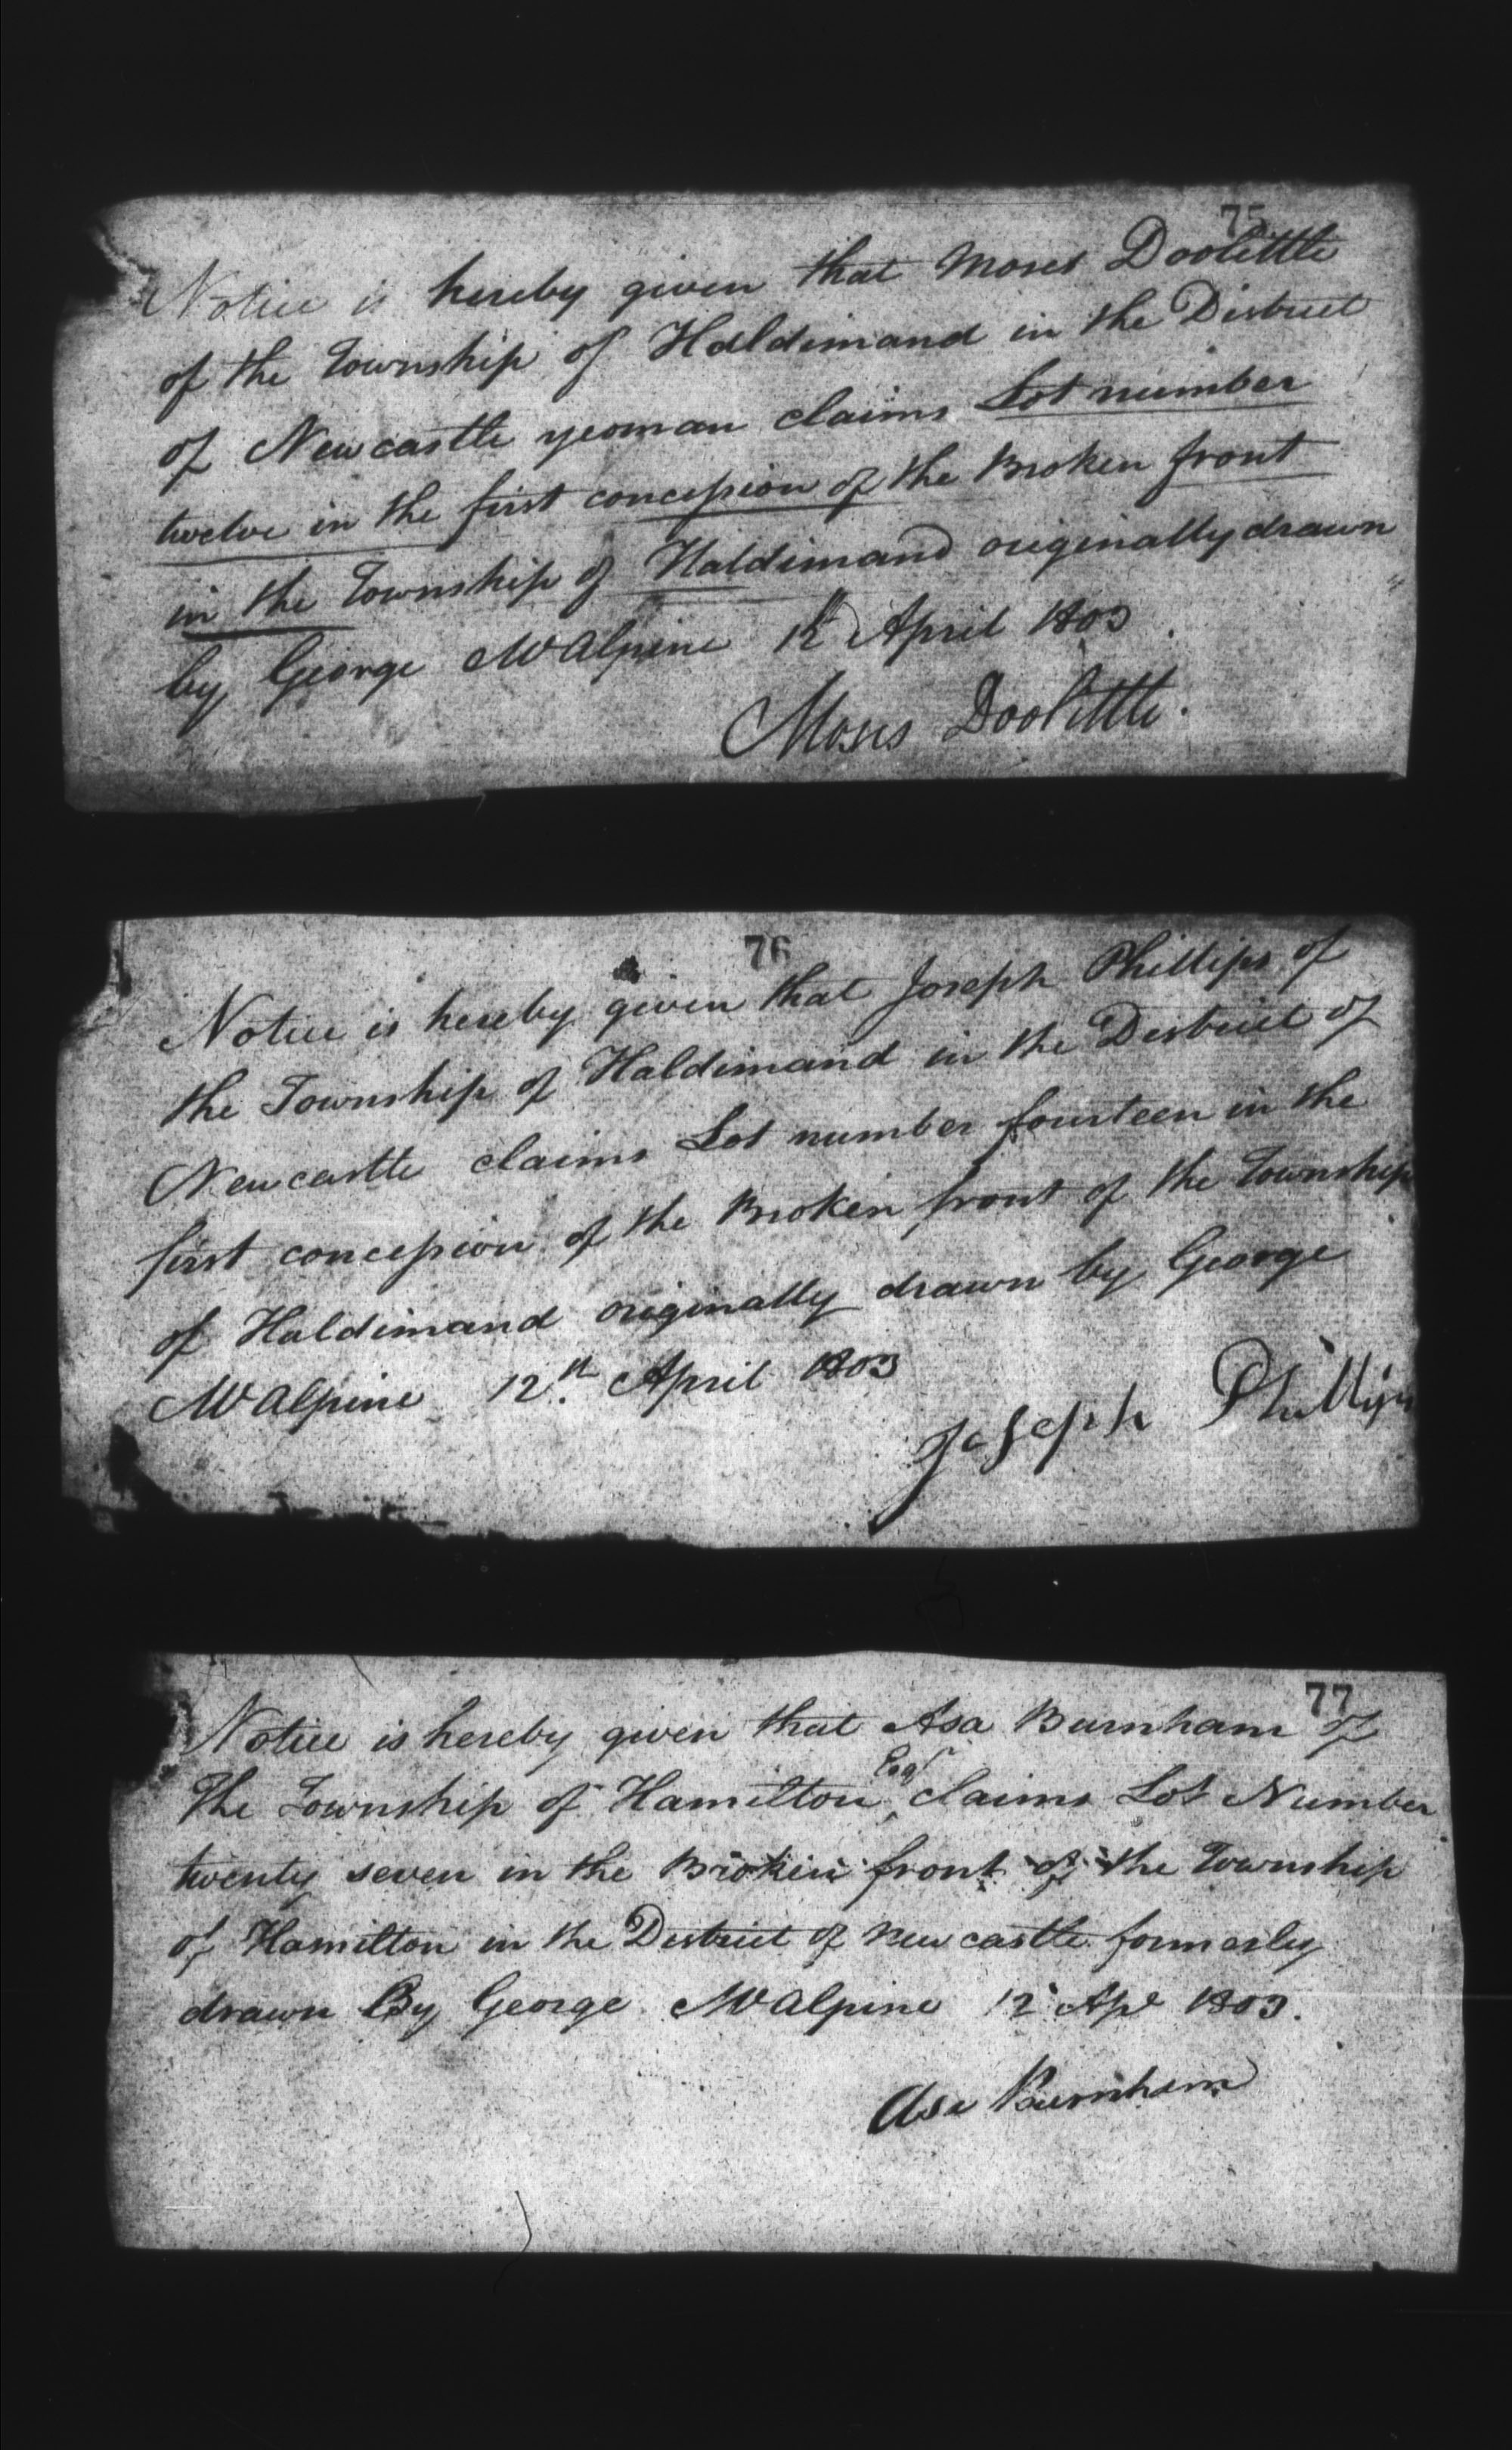 75
Notice is hereby given that Moses Doolittle
of the Township of Haldimand in the District
of Newcastle yeoman claims Lot number
twelve in the first concession of the Broken front
in the Township of Haldimand originally drawn
by George McAlpine 12 April 1803
Moses Doolittle.
76
Notice is hereby given that Joseph Phillips of
the Township of Haldimand in the District of
Newcastle claims Lot number fourteen in the
first concession of the Broken front of the Township
of Haldimand originally drawn by George
McAlpine 12th April 1803
Joseph Phillips
77
Notice is hereby given that Asa Burnham of
The Township of Hamilton Esqr claims Lot Number
twenty seven in the Broken front of the Township
of Hamilton in the District of Newcastle formerly
drawn By George McAlpine 12 Apl 1803.
Asa Burnham